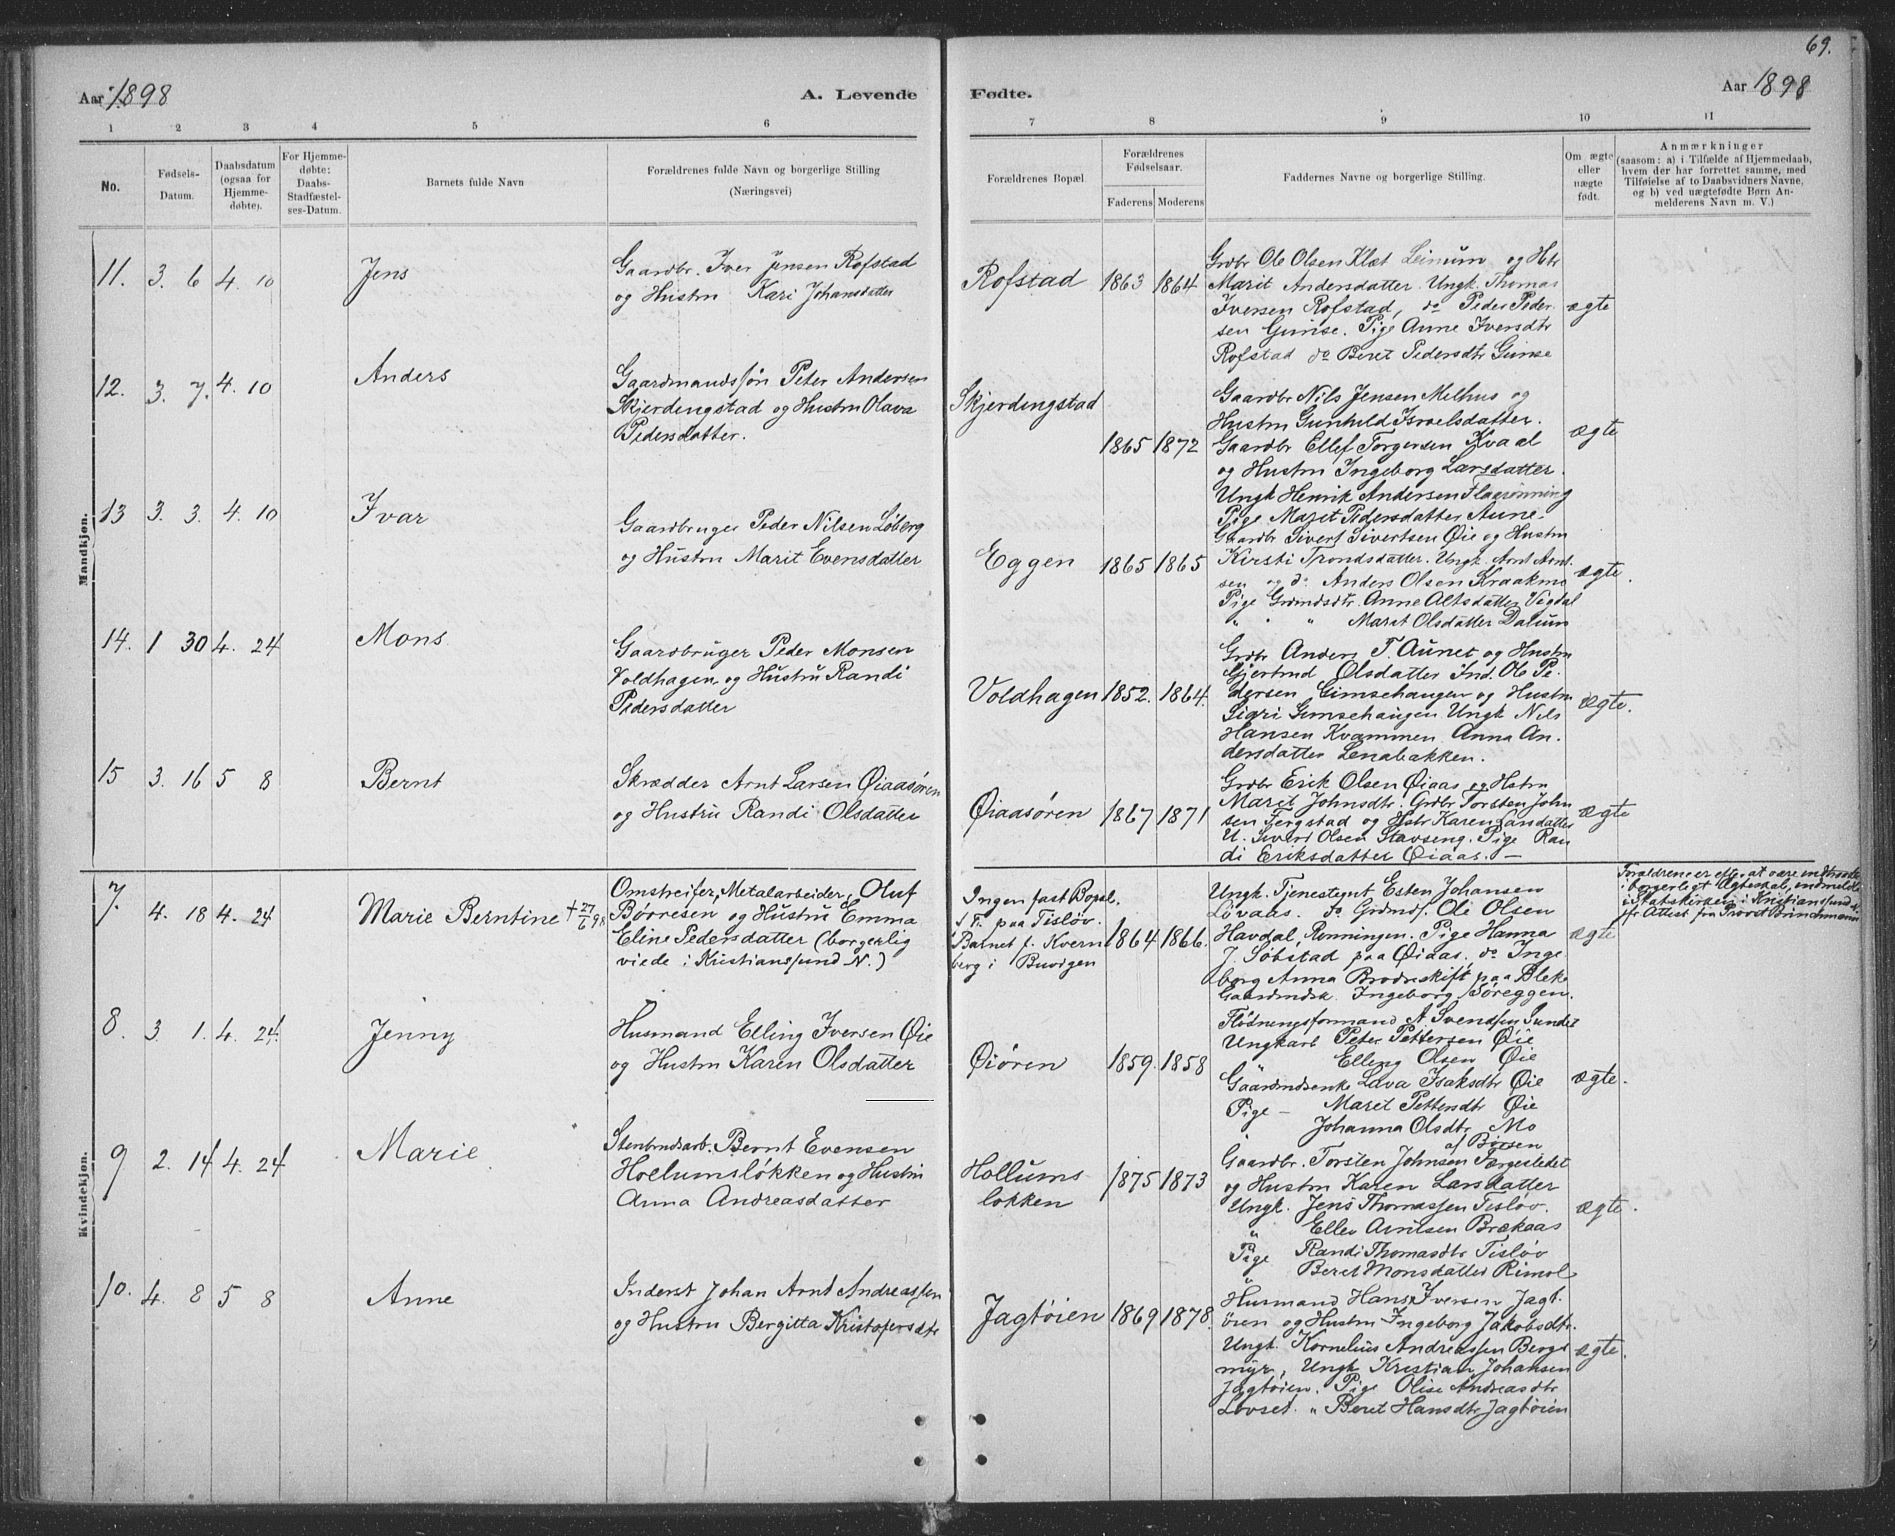 69.
Aar 1898
A. Levende
Fødte.
Aar 1898
1 2 3 4 5 6 7 8 9 10 11
No.
Fødsels-
Datum.
Daabsdatum
(ogsaa for
Hjemme-
døbte).
For Hjemme-
døbte:
Daabs-
Stadfæstel-
ses-Datum.
Barnets fulde Navn
Forældrenes fulde Navn og borgerlige Stilling
(Næringsvei)
Forældrenes Bopæl.
Forældrenes
Fødselsaar.
Faderens Moderens
Faddernes Navne og borgerlige Stilling.
Om ægte
eller
uægte
født.
Anmærkninger
(saasom: a) i Tilfælde af Hjemmedaab,
hvem der har forrettet samme, med
Tilføielse af to Daabsvidners Navne,
og b) ved uægtefødte Børn An-
melderens Navn m. V.)
Mandkjøn.
11. 3. 6 4. 10 Jens
Gaardbr. Iver Jensen Rofstad
og Hustru Kari Johansdatter
Rofstad 1863 1864
Grdbr Ole Olsen Klæt Leinum og Htr
Marit Andersdatter. Ungk. Thomas
Iversen Rofstad, do Peder Peder
sen Gimse. Pige Anne Iversdtr
Rofstad do Beret Pedersdtr Gimse
ægte
12. 3. 7. 4. 10 Anders
Gaardmandssøn Peter Andersen
Skjerdingstad og Hustru Olava
Pedersdatter.
Skjerdingstad
1865 1872
Gaardbr Nils Jensen Melhus og
Hustru Gunhild Israelsdatter.
Gaardbr Ellef Torgersen Kvaal
og Hustru Ingeborg Larsdatter.
Ungk Henrik Andersen Flaarønning
Pige Marit Pedersdatter Aune
ægte
13 3. 3. 4. 10 Ivar
Gaardbruger Peder Nilsen Løberg
og Hustru Marit Evensdatter
Eggen 1865 1865
Gaardbr Sivert Sivertsen Øie og Hustru
Kirsti Trondsdatter. Ungk. Arnt Arnt
sen og do Anders Olsen Kraakmo
Pige Grdmdsdtr. Anne Altsdatter Vigdal
" " " Marit Olsdatter Dalum
ægte.
14. 1 30 4. 24 Mons
Gaardbruger Peder Monsen
Voldhagen og Hustru Randi
Pedersdatter
Voldhagen 1852. 1864.
Grdbr Anders T. Aunet og Hustru
Gjertrud Olsdatter Ind. Ole Pe
dersen Gimsehaugen og Hustru
Sigri Gimsehaugen Ungk Nils
Hansen Kvammen. Anna An.
dersdatter Lenabakken.
ægte.
15 3. 16 5 8 Bernt
Skrædder Arnt Larsen Øiaasøren
og Hustru Randi Olsdatter
Øiaasøren 1867 1871
Grdbr Erik Olsen Øiaas og Hstru
Marit Johnsdtr. Grdbr Torsten John
sen Fergstad og Hstr Karen Larsdatter
U. Sivert Olsen Stavseng. Pige Ran
di Eriksdatter Øiaas. —
ægte
Kvindekjøn.
7. 4. 18 4. 24 Marie Berntine † 27/6 98
Omstreifer, Metalarbeider, Oluf
Børresen og Hustru Emma
Eline Pedersdatter (borgerlig
viede i Kristianssund N.)
Ingen fast Bopæl.
f. T. paa Tisløv.
Barnet f. Kvern
berg i Buvigen
1864 1866.
Ungk. Tjenestegut Esten Johansen
Løvaas. do Grdmds. Ole Olsen
Havdal, Rønningen. Pige Hanna
J. Søbstad paa Øiaas. do Inge
borg Anna Brødreskift paa Bleke
Gaardmdsk. Ingeborg Søreggen.
ægte
Forældrene er efter at være indtraadt
i borgerligt Ægteskab, indmeldt
i Statskirken i Kristianssund N.
ifr Attest fra Provst Brinchmann
8. 3 1. 4. 24. Jenny
Husmand Elling Iversen Øie
og Hustru Karen Olsdatter
Øiøren 1859. 1858
Flødningsformand A Svendsen Sundet
Ungkarl Peter Pettersen Øie
" Elling Olsen Øie
Gaardmdsenke Lava Isaksdtr Øie
Pige — Marit Pettersdtr Øie
Johanna Olsdtr. Mo
af Børsen
ægte.
9 2. 14 4. 24 Marie
Stenbrudsarb. Bernt Evensen
Hollumsløkken og Hustru
Anna Andreasdatter
Hollums
løkken
1875 1873
Gaardbr. Torsten Johnsen Færgestedet
og Hustru Karen Larsdatter
Ungk. Jens Thomassen Tisløv.
" Ellev Arntsen Brækaas
Pige Randi Thomasdtr Tisløv
" Beret Monsdatter Rimol
ægte.
10. 4. 8 5 8 Anne
Inderst Johan Arnt Andreassen
og Hustru Bergitta Kristofersdtr
Jagtøien 1869 1878.
Husmand Hans Iversen Jagt.
øien og Hustru Ingeborg Jakobsdtr.
Ungk. Kornelius Andreassen Bergs
myr, Ungk Kristian Johansen
Jagtøien. Pige Olise Andreasdtr
Løvset. " Beret Hansdtr Jagtøien
ægte.